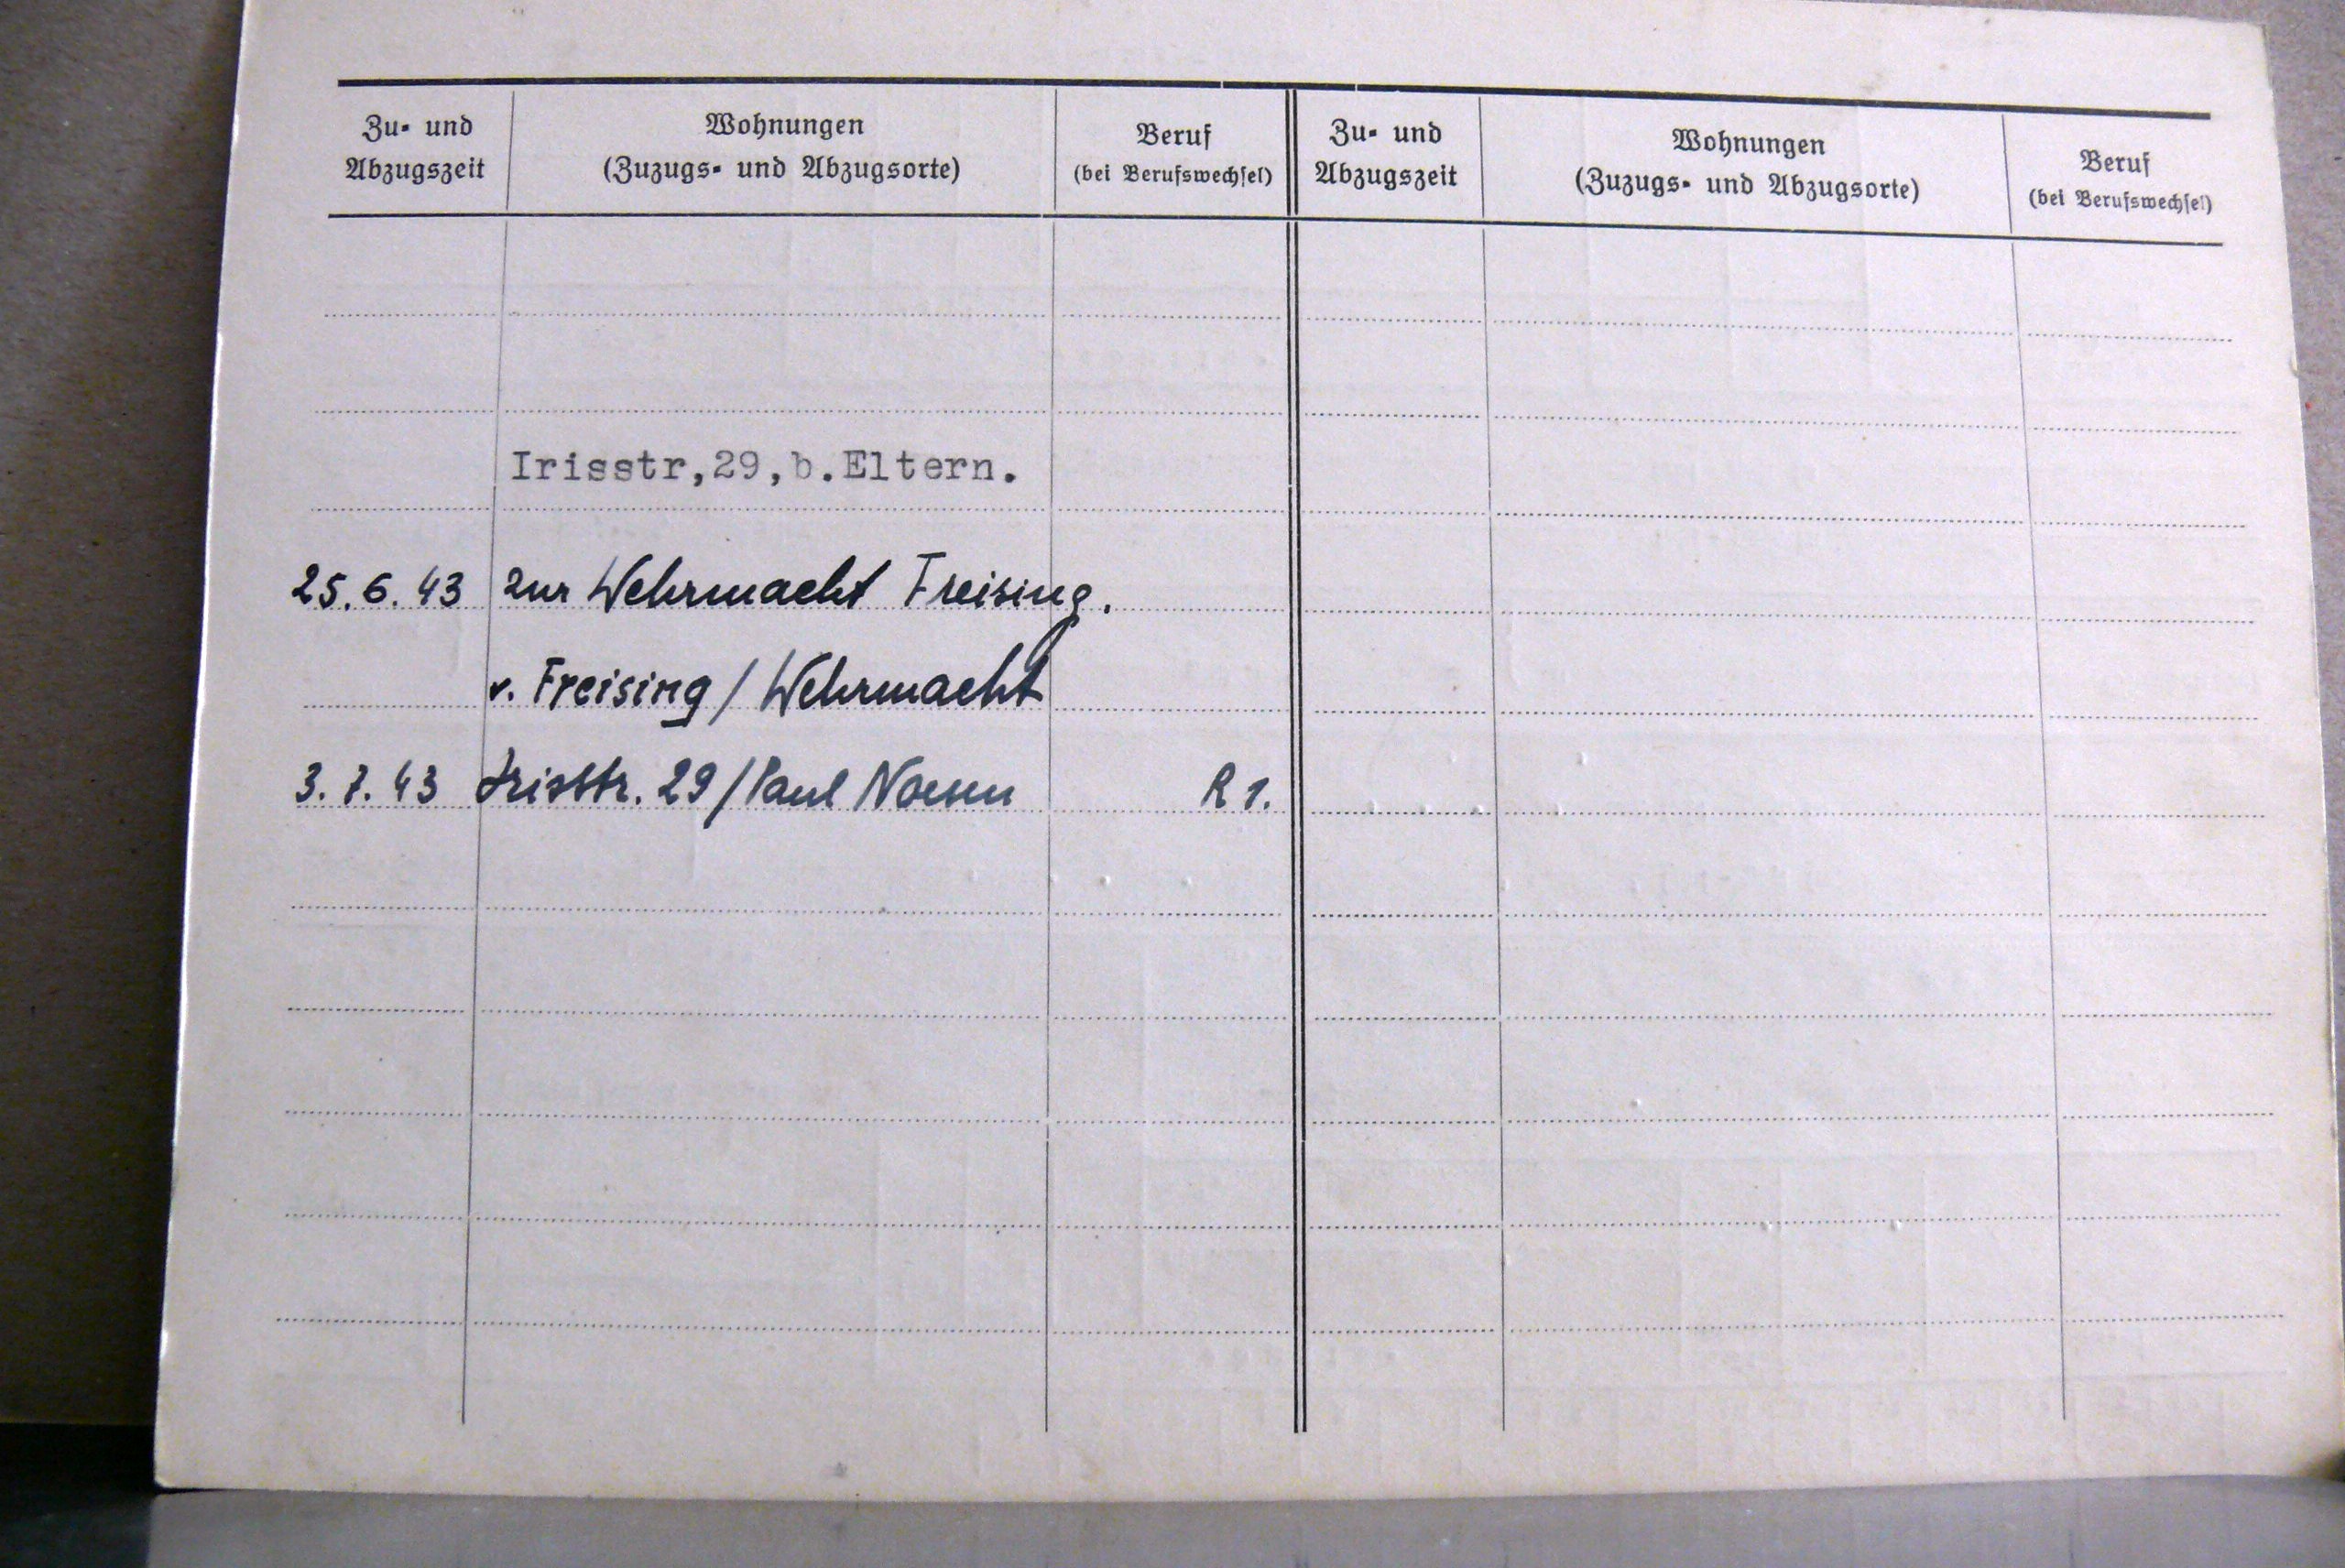 Zu- und
Abzugszeit
Wohnungen
(Zuzugs- und Abzugsorte)
Beruf
(bei Berufswechsel)
Zu- und
Abzugszeit
Wohnungen
(Zuzugs- und Abzugsorte)
Beruf
(bei Berufswechsel)
Irisstr,29,b.Eltern.
25.6.43 zur Wehrmacht Freising.
v. Freising / Wehrmacht
3.7.43 Irisstr. 29 / Paul R 1.